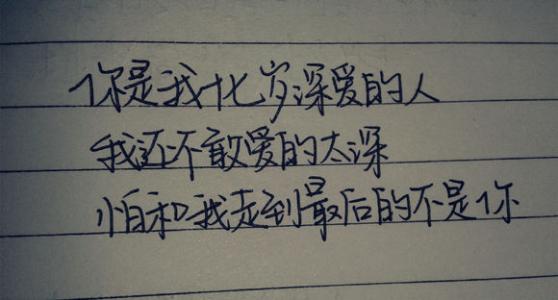 你是我十七岁深爱的人
我还不敢爱的太深
怕和我走到最后的不是你